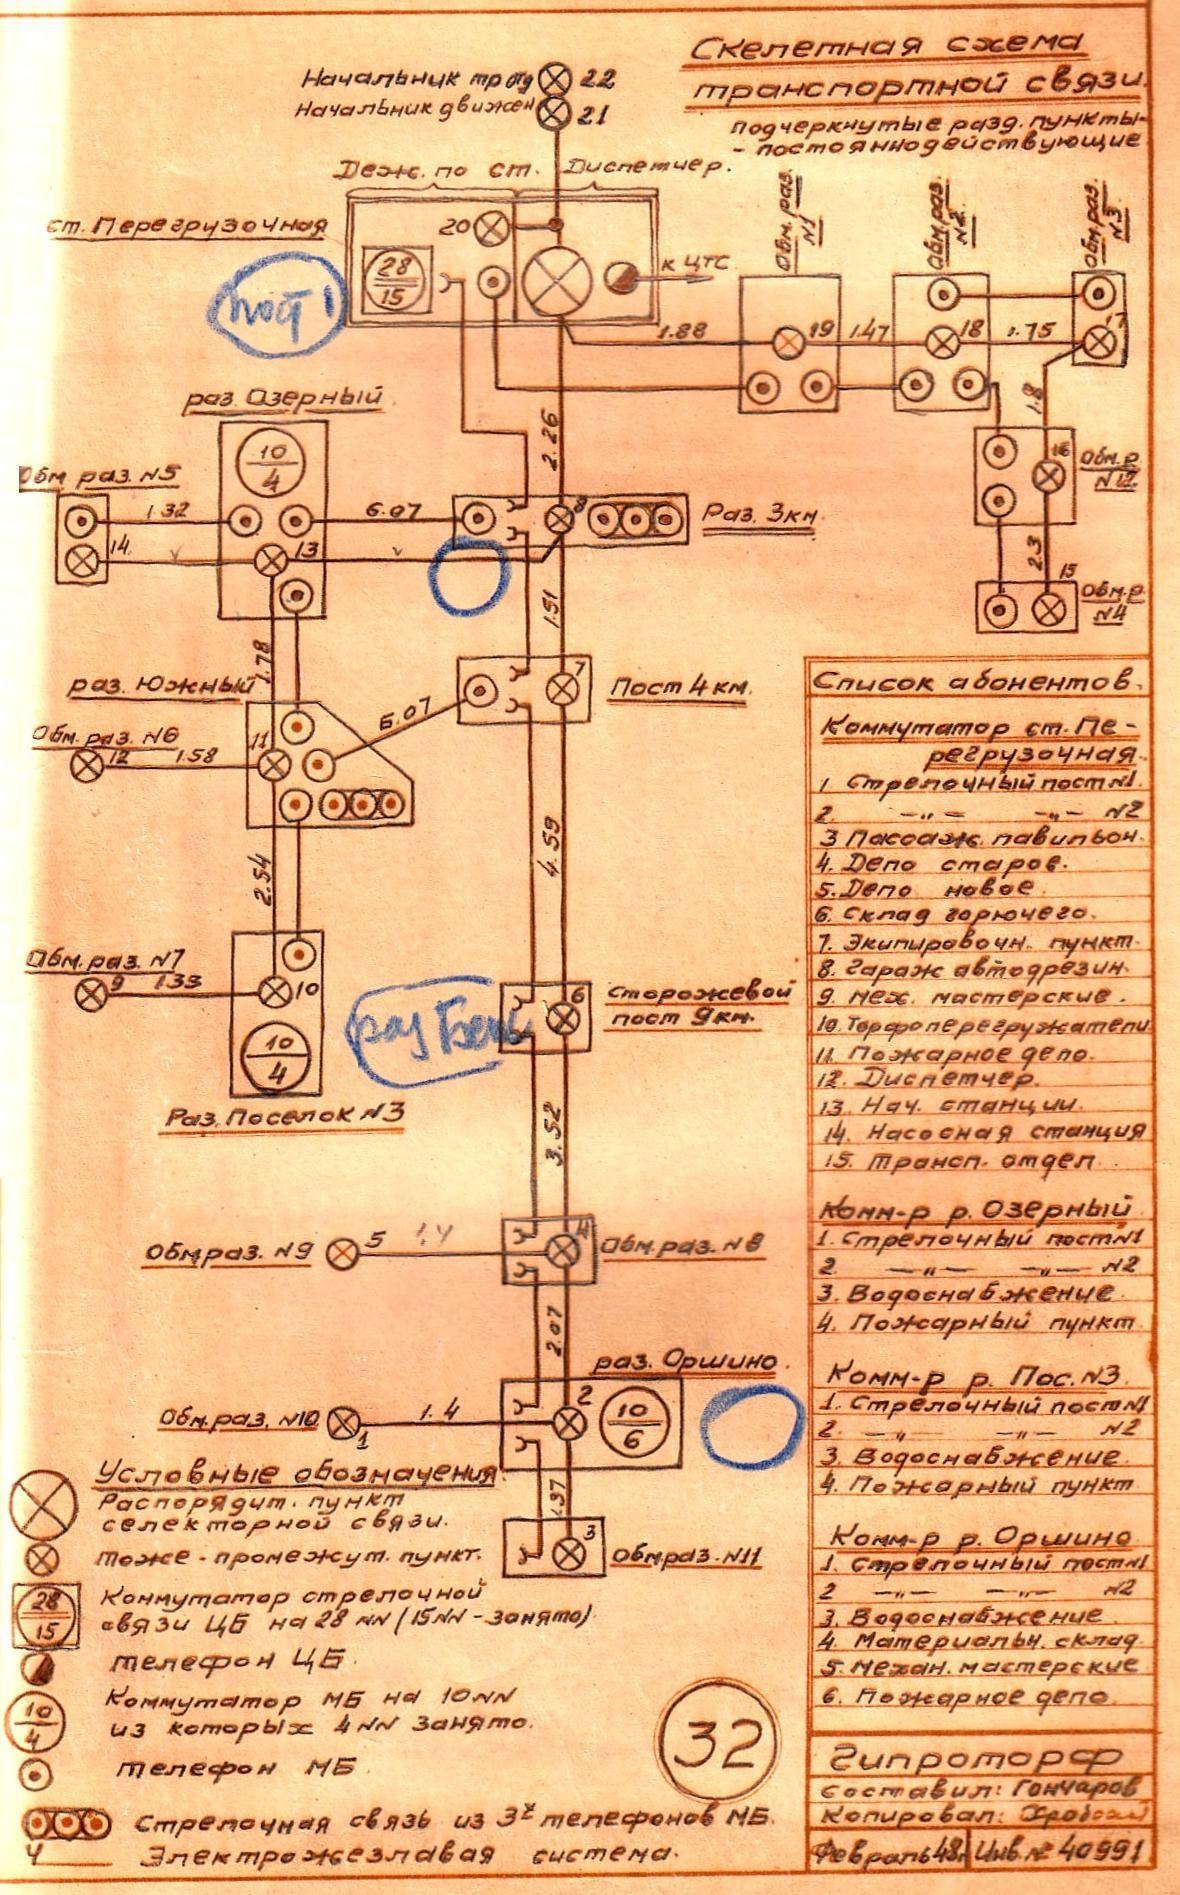 Скелетная схема
транспортной связи
подчеркнутые разд. пункты-
- постояннодействующие
Начальник 22
Начальник движен 21
Деж. по ст. Диспетчер.
ст. Перегрузочная
20
28
15
к ЦТС
пост 1
Обм. раз. №1
Обм. раз. №2
Обм. раз. №3
1.88 19 1.47 18 1.75 17
1.8
2.26
раз. Озерный
10
4
Обм. раз. №5
1.32
6.07
8
Раз. 3км.
14 13
16
Обм. р. №12
2.3
15
Обм. р. №4
1.51
1.78
раз. Южный
7
Пост 4 км.
6.07
Обм. раз. №6
12 1.58 11
4.59
2.54
Обм. раз. №7
9 1.33 10
10
4
Раз. Поселок №3
раз
6
Сторожевой
пост 9км.
3.52
Обм. раз. №9 5 1.4
Обм. раз. №8
2.07
раз. Оршино.
Обм. раз. №10 1 1.4 2
10
6
1.37
3
Обм. раз. №11
Список абонентов.
Коммутатор ст. Пе-
регрузочная.
1. Стрелочный пост №1.
2. —"— —"— №2
3 Пассаж. павильон.
4. Депо старое.
5. Депо новое.
6. Склад горючего.
7. Экипировочн. пункт.
8. Гараж автодрезин.
9. Мех. мастерские.
10. Торфоперегружатели
11. Пожарное депо.
12. Диспетчер.
13. Нач. станции.
14. Насосная станция
15. Трансп. отдел
Комм-р р. Озерный
1. Стрелочный пост №1
2. —"— —"— №2
3. Водоснабжение.
4. Пожарный пункт
Комм-р р. Пос. №3
1. Стрелочный пост №1
2. —"— —"— №2
3. Водоснабжение.
4. Пожарный пункт
Комм-р р. Оршино.
1. Стрелочный пост №1
2 —"— —"— №2
3. Водоснабжение.
4. Материальн. склад.
5. Механ. мастерские
6. Пожарное депо.
Условные обозначения.
Распорядит. пункт
селекторной связи.
Тоже - промежут. пункт.
28
15
Коммутатор стрелочной
связи ЦБ на 28 NN (15NN - занято)
телефон ЦБ.
10
4
Коммутатор МБ на 10 NN
из которых 4 NN занято.
телефон МБ.
Стрелочная связь из 3х телефонов МБ.
Электрожезлавая система.
32
Гипроторф
Составил: Гончаров
Копировал:
Февраль 48г Инв. № 40991